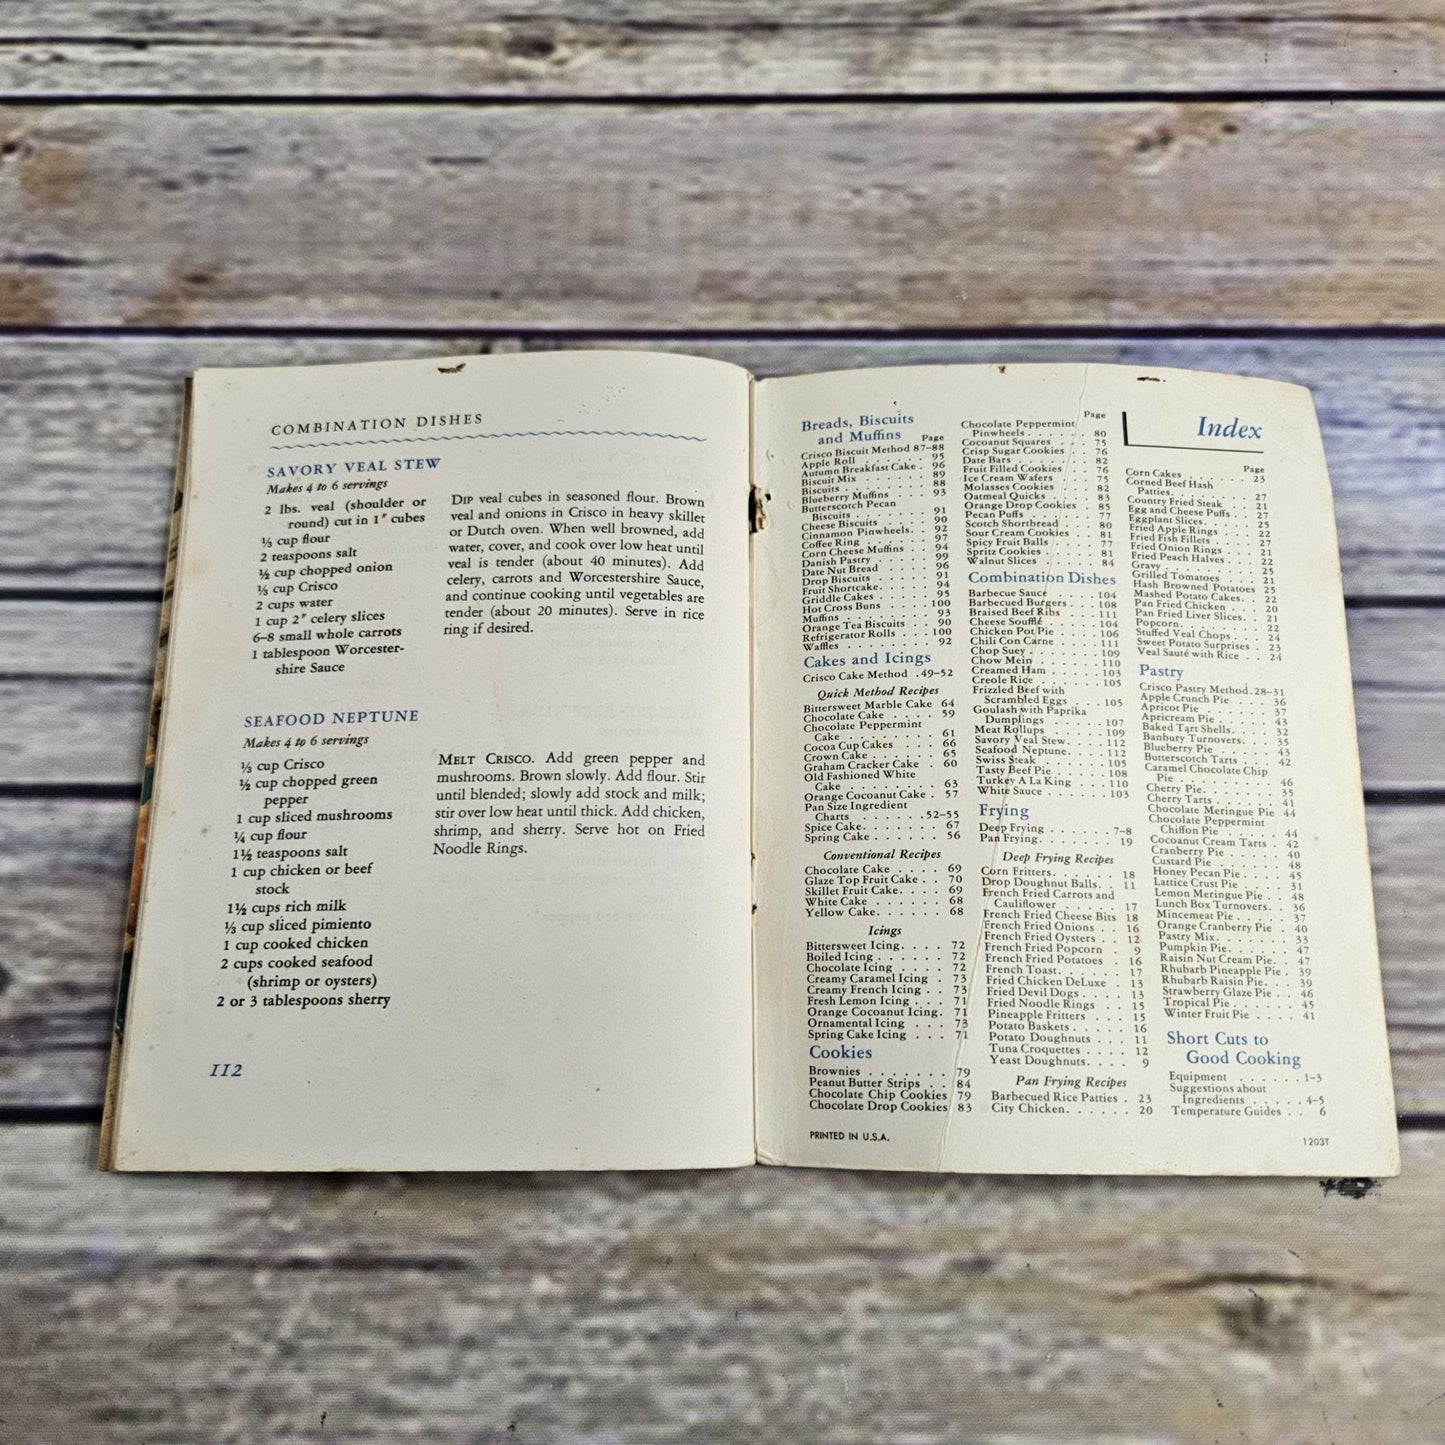 COMBINATION DISHES
SAVORY VEAL STEW
Makes 4 to 6 servings
2 lbs. veal (shoulder or
round) cut in 1" cubes
⅓ cup flour
2 teaspoons salt
½ cup chopped onion
⅓ cup Crisco
2 cups water
1 cup 2" celery slices
6–8 small whole carrots
1 tablespoon Worcester-
shire Sauce
DIP veal cubes in seasoned flour. Brown
veal and onions in Crisco in heavy skillet
or Dutch oven. When well browned, add
water, cover, and cook over low heat until
veal is tender (about 40 minutes). Add
celery, carrots and Worcestershire Sauce,
and continue cooking until vegetables are
tender (about 20 minutes). Serve in rice
ring if desired.
SEAFOOD NEPTUNE
Makes 4 to 6 servings
⅓ cup Crisco
½ cup chopped green
pepper
1 cup sliced mushrooms
¼ cup flour
1½ teaspoons salt
1 cup chicken or beef
stock
1½ cups rich milk
⅓ cup sliced pimiento
1 cup cooked chicken
2 cups cooked seafood
(shrimp or oysters)
2 or 3 tablespoons sherry
MELT CRISCO. Add green pepper and
mushrooms. Brown slowly. Add flour. Stir
until blended; slowly add stock and milk;
stir over low heat until thick. Add chicken,
shrimp, and sherry. Serve hot on Fried
Noodle Rings.
112
Breads, Biscuits
and Muffins Page
Crisco Biscuit Method 87–88
Apple Roll . . . . . 95
Autumn Breakfast Cake . 96
Biscuit Mix . . . . . 89
Biscuits . . . . . 88
Blueberry Muffins . . . 93
Butterscotch Pecan
Biscuits . . . . . 91
Cheese Biscuits . . . . 90
Cinnamon Pinwheels . . 92
Coffee Ring . . . . . 97
Corn Cheese Muffins . . 94
Danish Pastry . . . . 99
Date Nut Bread . . . . 96
Drop Biscuits . . . . 91
Fruit Shortcake . . . . 94
Griddle Cakes . . . . 95
Hot Cross Buns . . . 100
Muffins . . . . . 93
Orange Tea Biscuits . . 90
Refrigerator Rolls . . . 100
Waffles . . . . . 92
Cakes and Icings
Crisco Cake Method . 49–52
Quick Method Recipes
Bittersweet Marble Cake 64
Chocolate Cake . . . . 59
Chocolate Peppermint
Cake . . . . . 61
Cocoa Cup Cakes . . . 66
Crown Cake . . . . . 65
Graham Cracker Cake . 60
Old Fashioned White
Cake . . . . . 63
Orange Cocoanut Cake . 57
Pan Size Ingredient
Charts . . . . . 52–55
Spice Cake . . . . . 67
Spring Cake . . . . . 56
Conventional Recipes
Chocolate Cake . . . . 69
Glaze Top Fruit Cake . . 70
Skillet Fruit Cake . . . 69
White Cake . . . . . 68
Yellow Cake . . . . . 68
Icings
Bittersweet Icing . . . . 72
Boiled Icing . . . . . 72
Chocolate Icing . . . . 72
Creamy Caramel Icing . 73
Creamy French Icing . . 73
Fresh Lemon Icing . . . 71
Orange Cocoanut Icing . 71
Ornamental Icing . . . 73
Spring Cake Icing . . . 71
Cookies
Brownies . . . . . 79
Peanut Butter Strips . . 84
Chocolate Chip Cookies 79
Chocolate Drop Cookies 83
PRINTED IN U.S.A.
Page
Chocolate Peppermint
Pinwheels . . . . . 80
Cocoanut Squares . . . 75
Crisp Sugar Cookies . . 76
Date Bars . . . . . 82
Fruit Filled Cookies . . 76
Ice Cream Wafers . . . 75
Molasses Cookies . . . 82
Oatmeal Quicks . . . . 83
Orange Drop Cookies . . 85
Pecan Puffs . . . . . 77
Scotch Shortbread . . . 80
Sour Cream Cookies . . 81
Spicy Fruit Balls . . . 77
Spritz Cookies . . . . 81
Walnut Slices . . . . 84
Combination Dishes
Barbecue Sauce . . . . 104
Barbecued Burgers . . . 108
Braised Beef Ribs . . . 111
Cheese Soufflé . . . . 104
Chicken Pot Pie . . . . 106
Chili Con Carne . . . . 111
Chop Suey . . . . . 109
Chow Mein . . . . . 110
Creamed Ham . . . . 103
Creole Rice . . . . . 105
Frizzled Beef with
Scrambled Eggs . . . 105
Goulash with Paprika
Dumplings . . . . 107
Meat Rollups . . . . 109
Savory Veal Stew . . . 112
Seafood Neptune . . . 112
Swiss Steak . . . . . 105
Tasty Beef Pie . . . . 108
Turkey A La King . . . 110
White Sauce . . . . . 103
Frying
Deep Frying . . . . . 7–8
Pan Frying . . . . . 19
Deep Frying Recipes
Corn Fritters . . . . . 18
Drop Doughnut Balls . . 11
French Fried Carrots and
Cauliflower . . . . 17
French Fried Cheese Bits 18
French Fried Onions . . 16
French Fried Oysters . . 12
French Fried Popcorn . 9
French Fried Potatoes . 16
French Toast . . . . . 17
Fried Chicken DeLuxe . 13
Fried Devil Dogs . . . 13
Fried Noodle Rings . . 15
Pineapple Fritters . . . 15
Potato Baskets . . . . 16
Potato Doughnuts . . . 11
Tuna Croquettes . . . . 12
Yeast Doughnuts . . . . 9
Pan Frying Recipes
Barbecued Rice Patties . 23
City Chicken . . . . . 20
Index
Page
Corn Cakes . . . . . 23
Corned Beef Hash
Patties . . . . . 27
Country Fried Steak . . 21
Egg and Cheese Puffs . . 27
Eggplant Slices . . . . 25
Fried Apple Rings . . . 22
Fried Fish Fillets . . . 27
Fried Onion Rings . . . 21
Fried Peach Halves . . . 22
Gravy . . . . . 25
Grilled Tomatoes . . . 21
Hash Browned Potatoes 25
Mashed Potato Cakes . . 22
Pan Fried Chicken . . . 20
Pan Fried Liver Slices . . 21
Popcorn . . . . . 22
Stuffed Veal Chops . . . 24
Sweet Potato Surprises . 23
Veal Sauté with Rice . . 24
Pastry
Crisco Pastry Method . 28–31
Apple Crunch Pie . . . 36
Apricot Pie . . . . . 37
Apricream Pie . . . . 43
Baked Tart Shells . . . 32
Banbury Turnovers . . . 35
Blueberry Pie . . . . 43
Butterscotch Tarts . . . 42
Caramel Chocolate Chip
Pie . . . . . 46
Cherry Pie . . . . . 35
Cherry Tarts . . . . . 41
Chocolate Meringue Pie 44
Chocolate Peppermint
Chiffon Pie . . . . 44
Cocoanut Cream Tarts . 42
Cranberry Pie . . . . 40
Custard Pie . . . . . 48
Honey Pecan Pie . . . 45
Lattice Crust Pie . . . 31
Lemon Meringue Pie . . 48
Lunch Box Turnovers . . 36
Mincemeat Pie . . . . 37
Orange Cranberry Pie . 40
Pastry Mix . . . . . 33
Pumpkin Pie . . . . . 47
Raisin Nut Cream Pie . . 47
Rhubarb Pineapple Pie . 39
Rhubarb Raisin Pie . . . 39
Strawberry Glaze Pie . . 46
Tropical Pie . . . . . 45
Winter Fruit Pie . . . . 41
Short Cuts to
Good Cooking
Equipment . . . . . 1–3
Suggestions about
Ingredients . . . . . 4–5
Temperature Guides . . 6
1203T